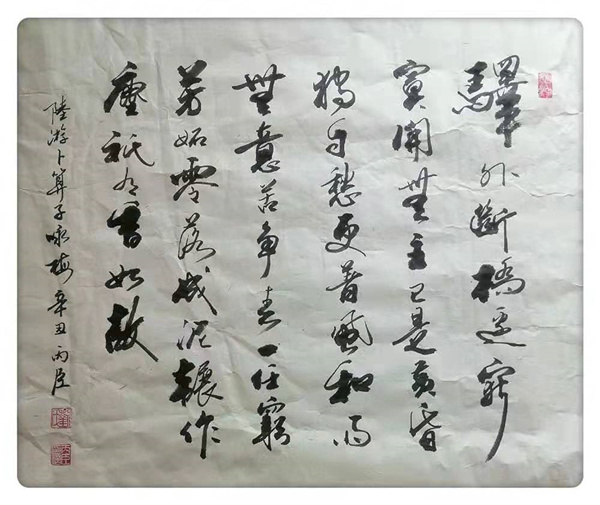 驛外斷橋邊寂
寞開無主已是黃昏
獨自愁更著風和雨
無意苦爭春一任羣
芳妬零落成泥輾作
塵祇有香如故
陸游卜算子咏梅 辛丑 丙臣